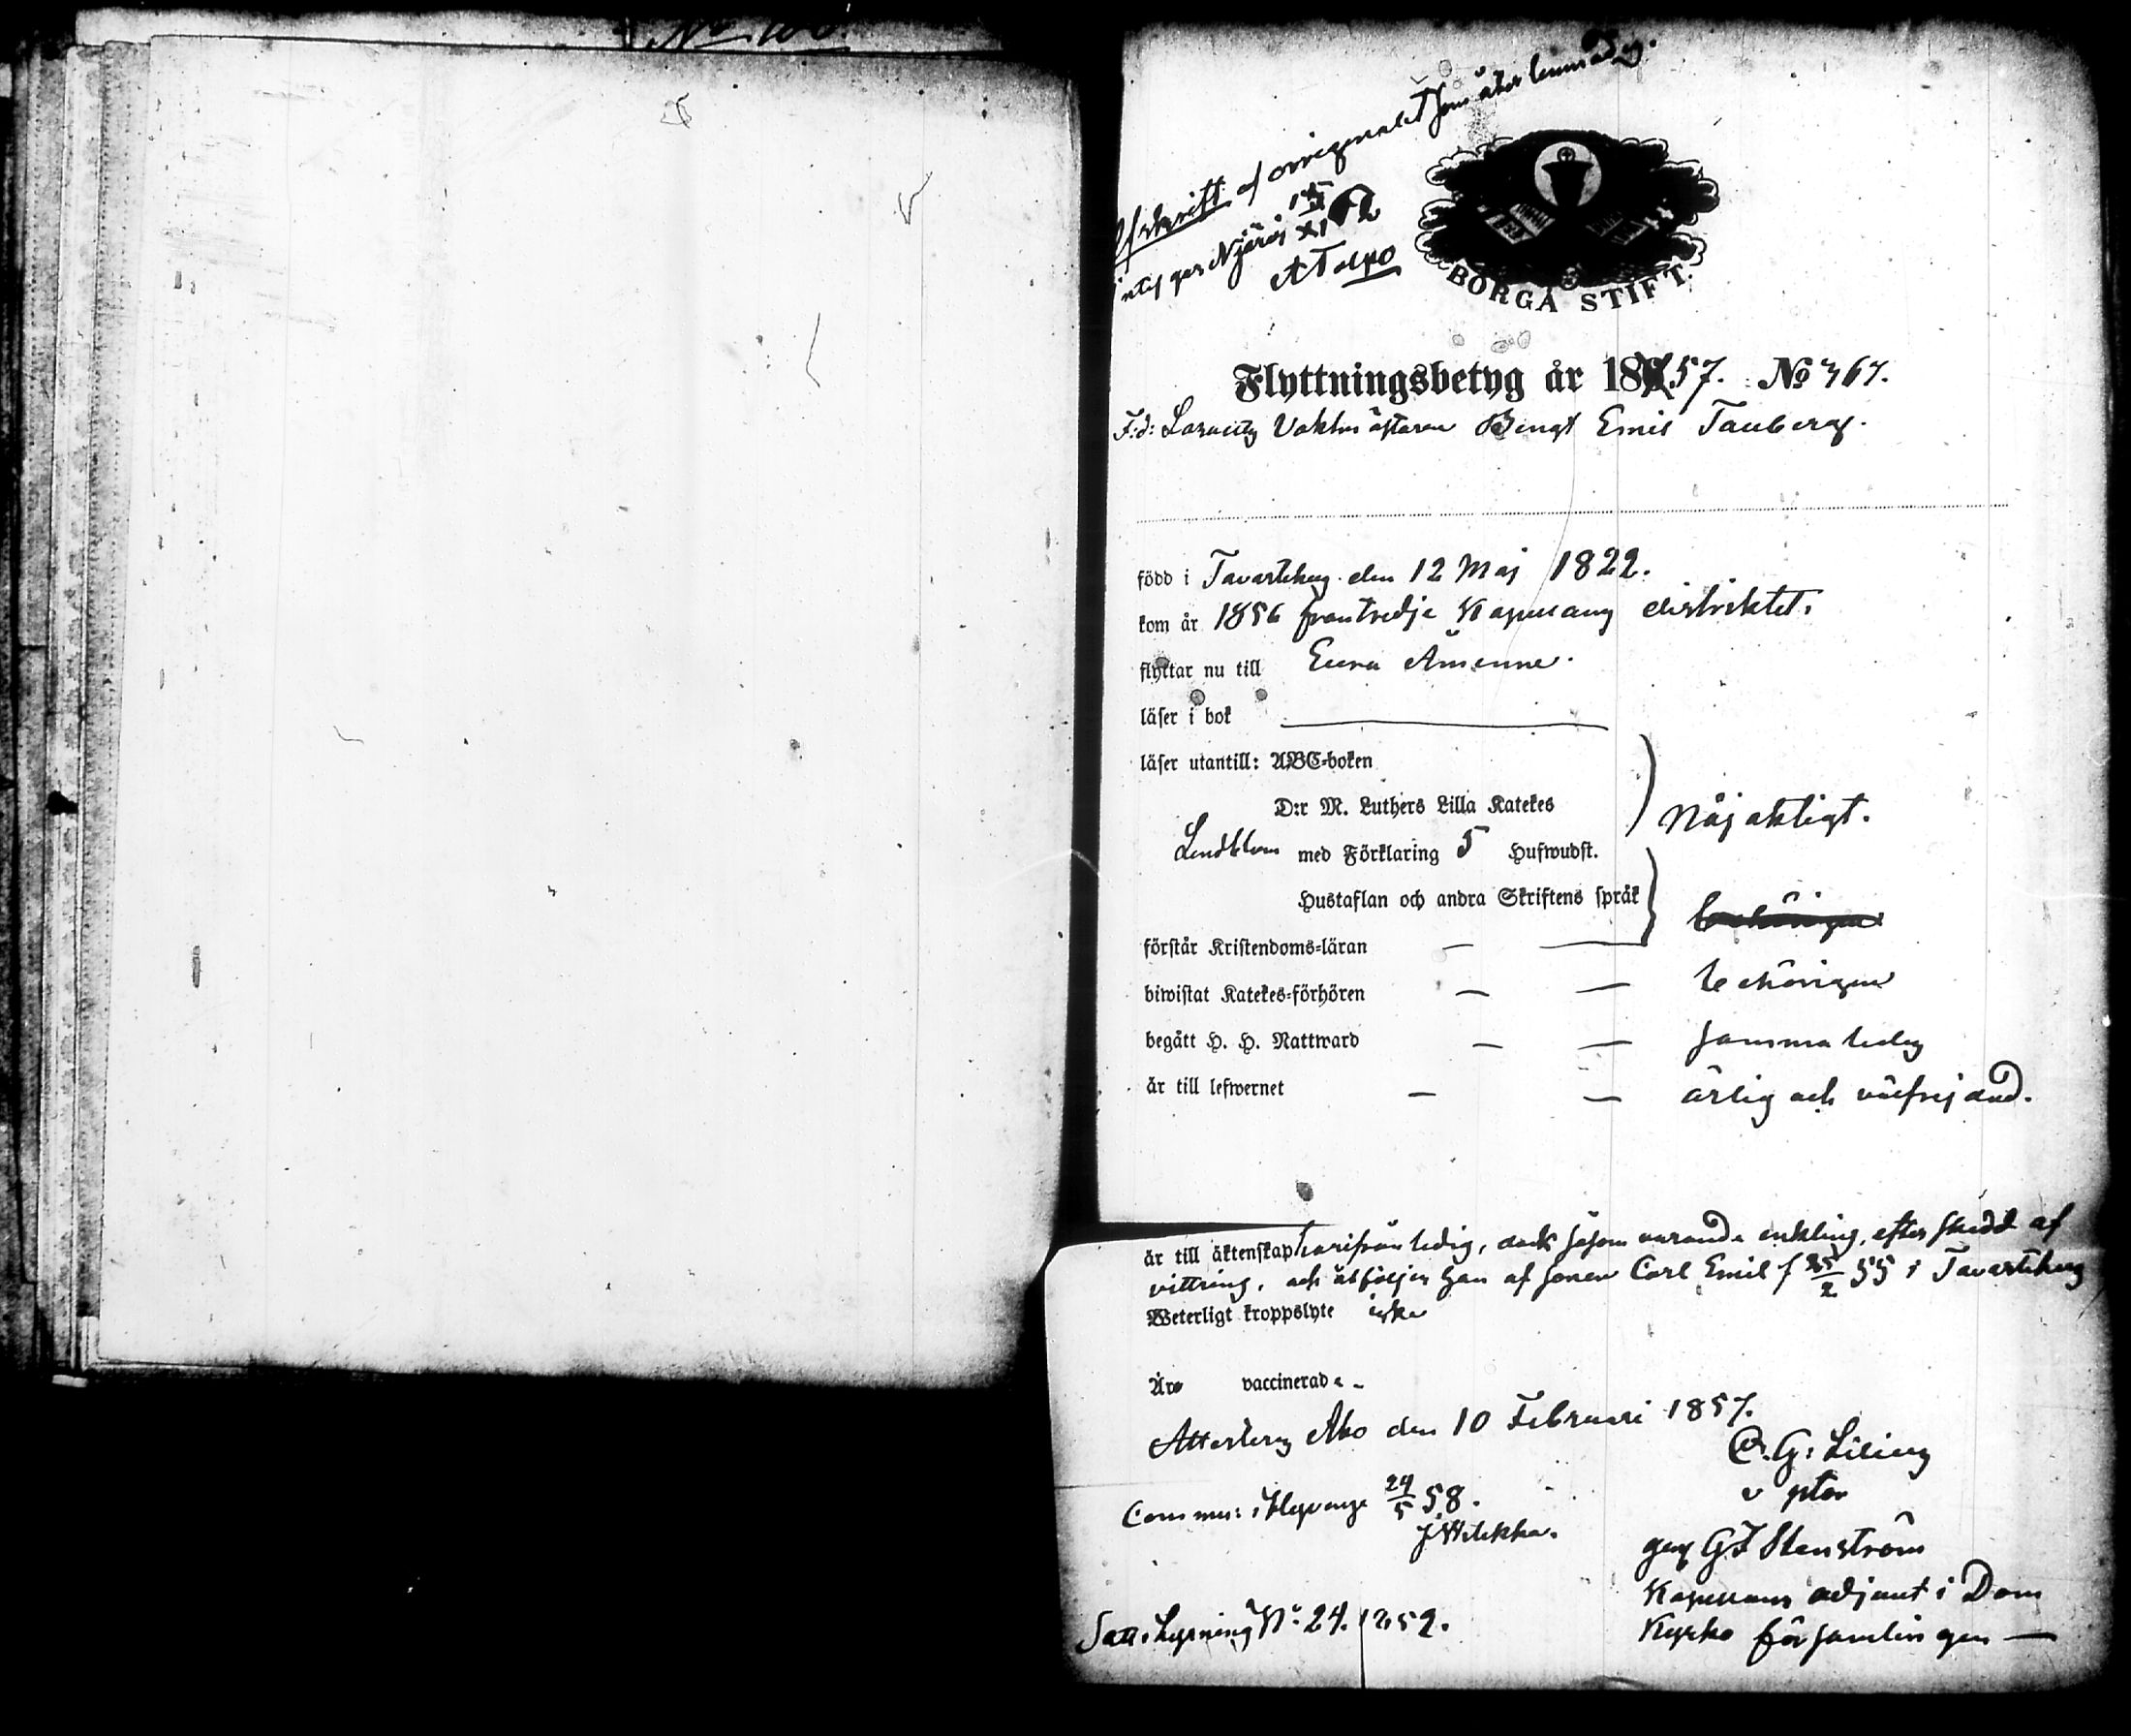 No 100.
Afskrift af orriginalet som återlemnades.
intyg ges Njärej 15/XI 62
A Talpo
BORGÅ STIFT.
Flyttningsbetyg år 1857. No 767.
F:d: Vaktmästaren Bengt Emil Tauberg.
född i Tavastehus den 12 Maj 1822.
kom år 1856 från tredje Kapellans distriktet.
flyttar nu till Eura Åminne.
läser i bok
läser utantill: ABC-boken
D:r M. Luthers Lilla Katekes
Nöjaktigt.
Lindblom med Förklaring 5 Hufwudst.
Hustaflan och andra Skriftens språk
behörigen
förstår Kristendoms-läran — —
biwistat Katekes-förhören — — behörigen
begått H. H. Nattward — — samma
är till lefwernet — — ärlig och välfrejdad.
är till äktenskap härifrån ledig, dock såsom varande enkling, efter skedd af
vittring, och åtföljes han af sonen Carl Emil f 25/2 55 i Tavastehus
Weterligt kroppslyte icke
Äro vaccinerade -
Attesteras Åbo den 10 Februari 1857.
C. G: Lilius
v pstor
Commu: i 24/5 58.
gm G F Stenström
Kapellans adjunt i Dom
Kyrko församlingen —
Satt i Lysning No: 24. 1859.